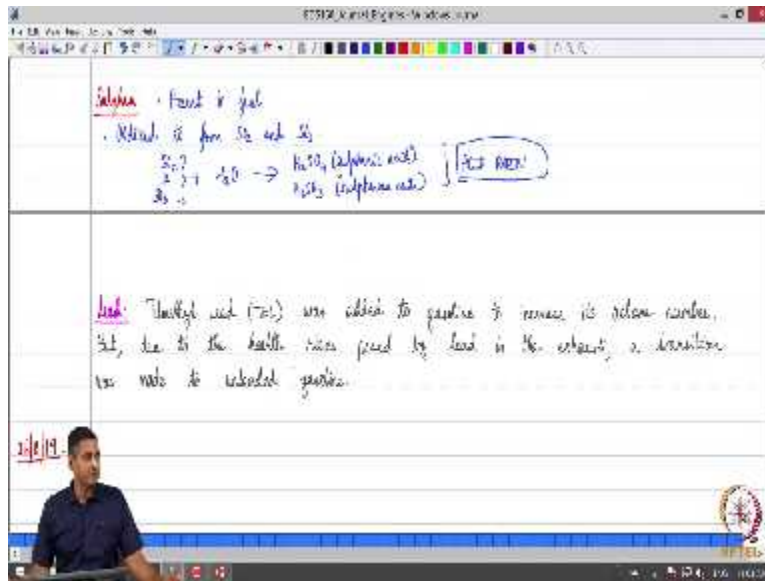 Sulphur • Found in fuel
• Oxidized to form SO2 and SO3
SO2 } + H2O → H2SO4 (sulphuric acid)
SO3 H2SO3 (sulphurous acid) ACID RAIN!
Lead: Tetraethyl lead (TEL) was added to gasoline to increase its octane number.
But, due to the health risks posed by lead in the exhaust, a transition
was made to unleaded gasoline.
NPTEL